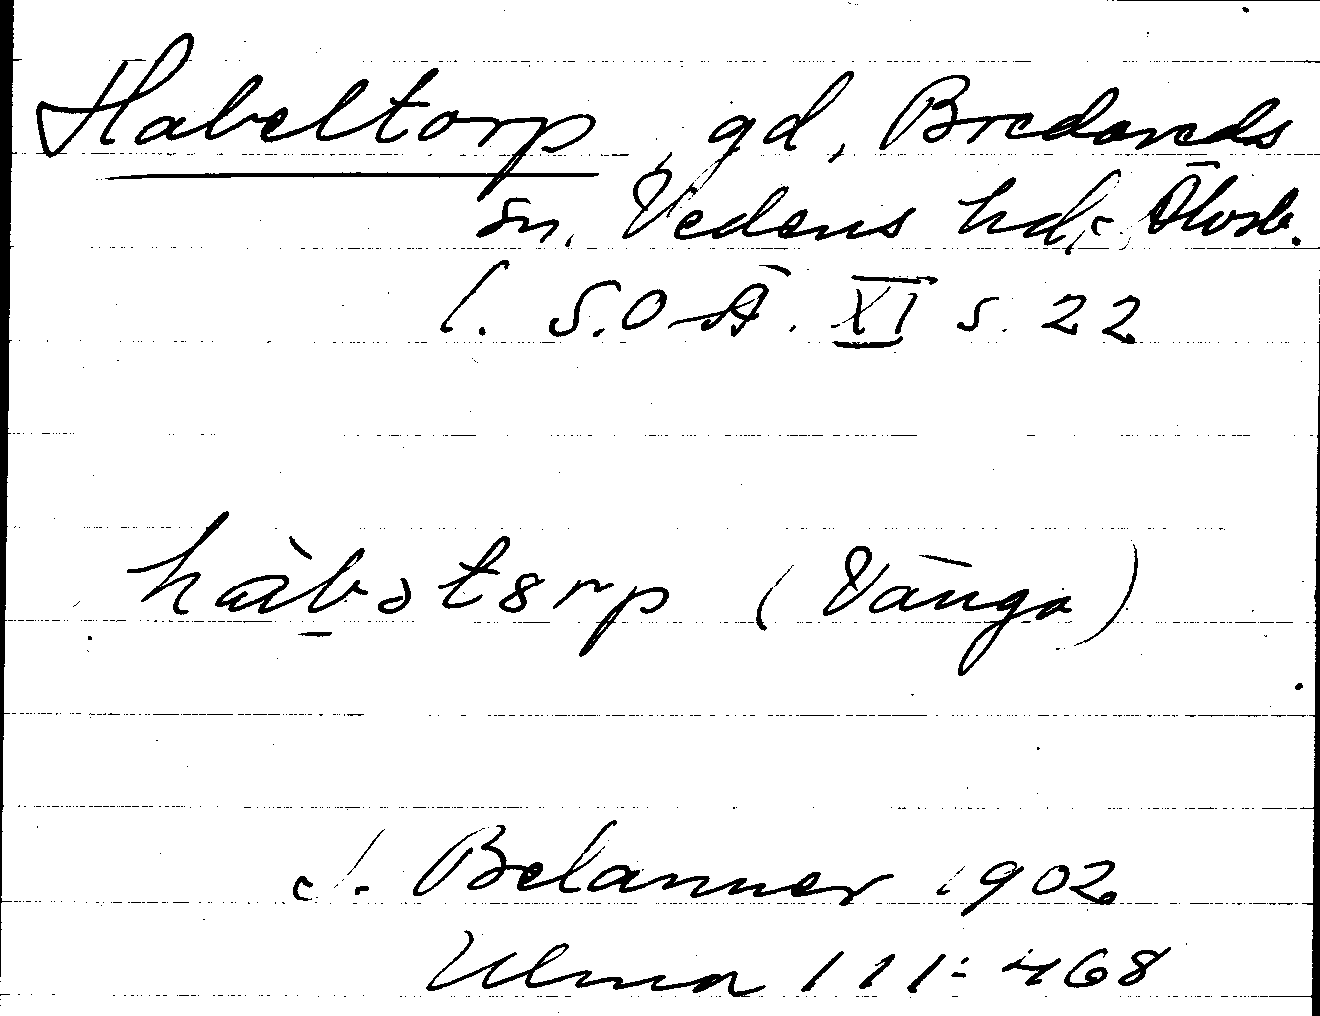 Habeltorp, gd, Bredareds
sn, Vedens hd, Älvsb.
l. S.O.Ä. XI s. 22
hàbətɵrp (Vånga)
J. Belanner 1902
Ulma 111:468